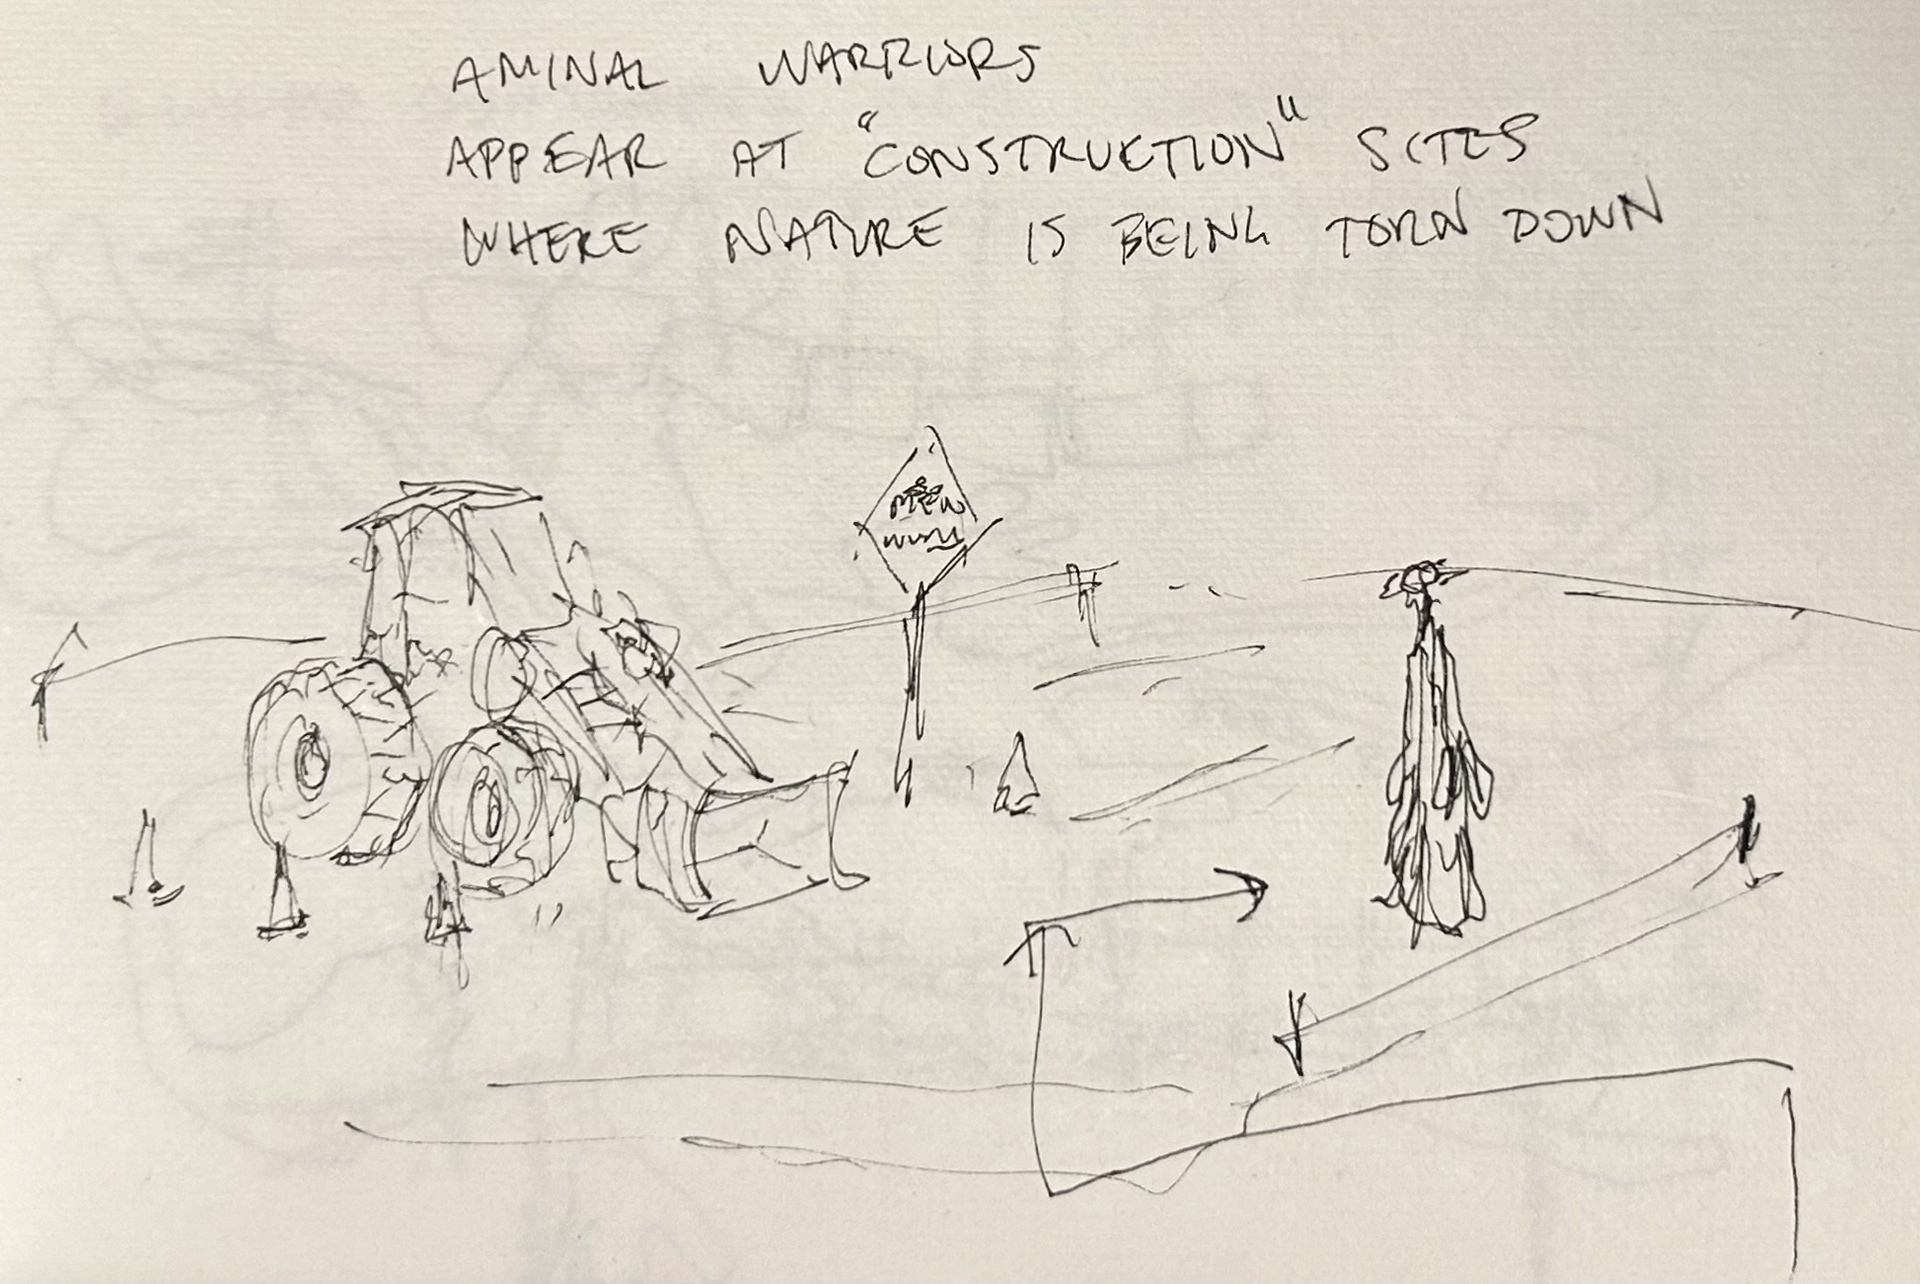 AMINAL WARRIORS
APPEAR AT "CONSTRUCTION" SITES
WHERE NATURE IS BEING TORN DOWN
MEN